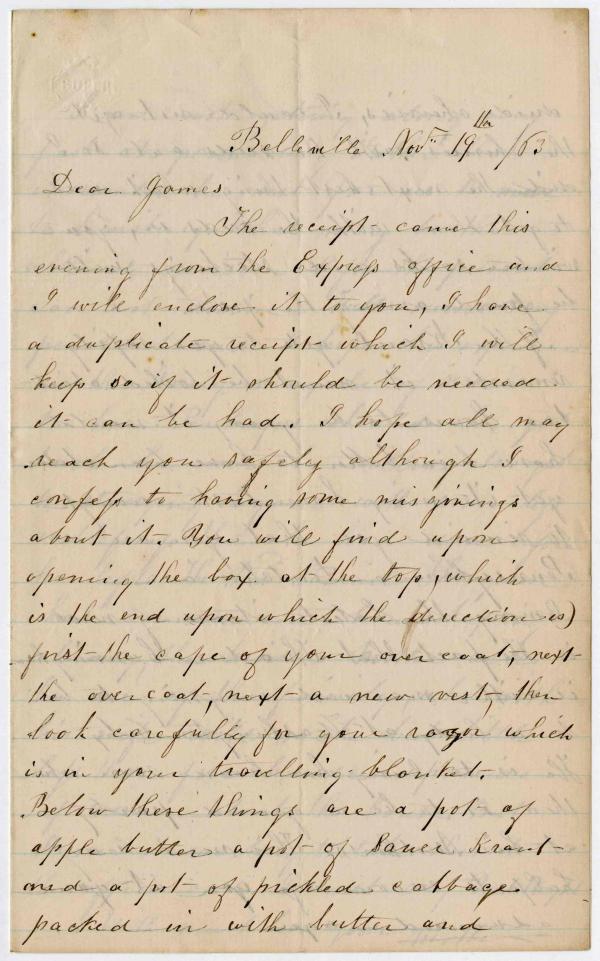 Belleville Nov" 19th /63
Dear James
The receipt came this
evening from the Express office and
I will enclose it to you, I have
a duplicate receipt which I will
keep so if it should be needed
it can be had. I hope all may
reach you safely although I
confess to having some misgivings
about it. You will find upon
opening the box at the top, which
is the end upon which the direction is)
first the cape of your over coat, next
the over coat, next a new vest, then
look carefully for your razor which
is in your travelling blanket.
Below these things are a pot of
apple butter a pot of Sauer Kraut
and a pot of pickled cabbage
packed in with butter and